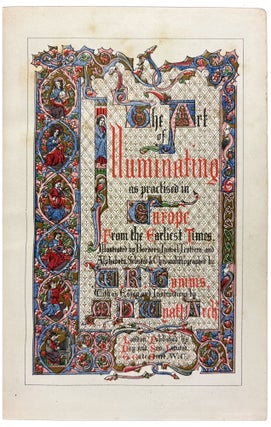 The Art
of
Illuminating
as practised in
Europe
From the Earliest Times.
Illustrated by Borders, Initial Letters and
Alphabets, Selected & Chromolithographed by
W. R. Tymms
With an Essay and Instructions by
M. D. Wyatt, Arch.
London, Published by
Day and Son, Limited,
Gate Street, W.C.